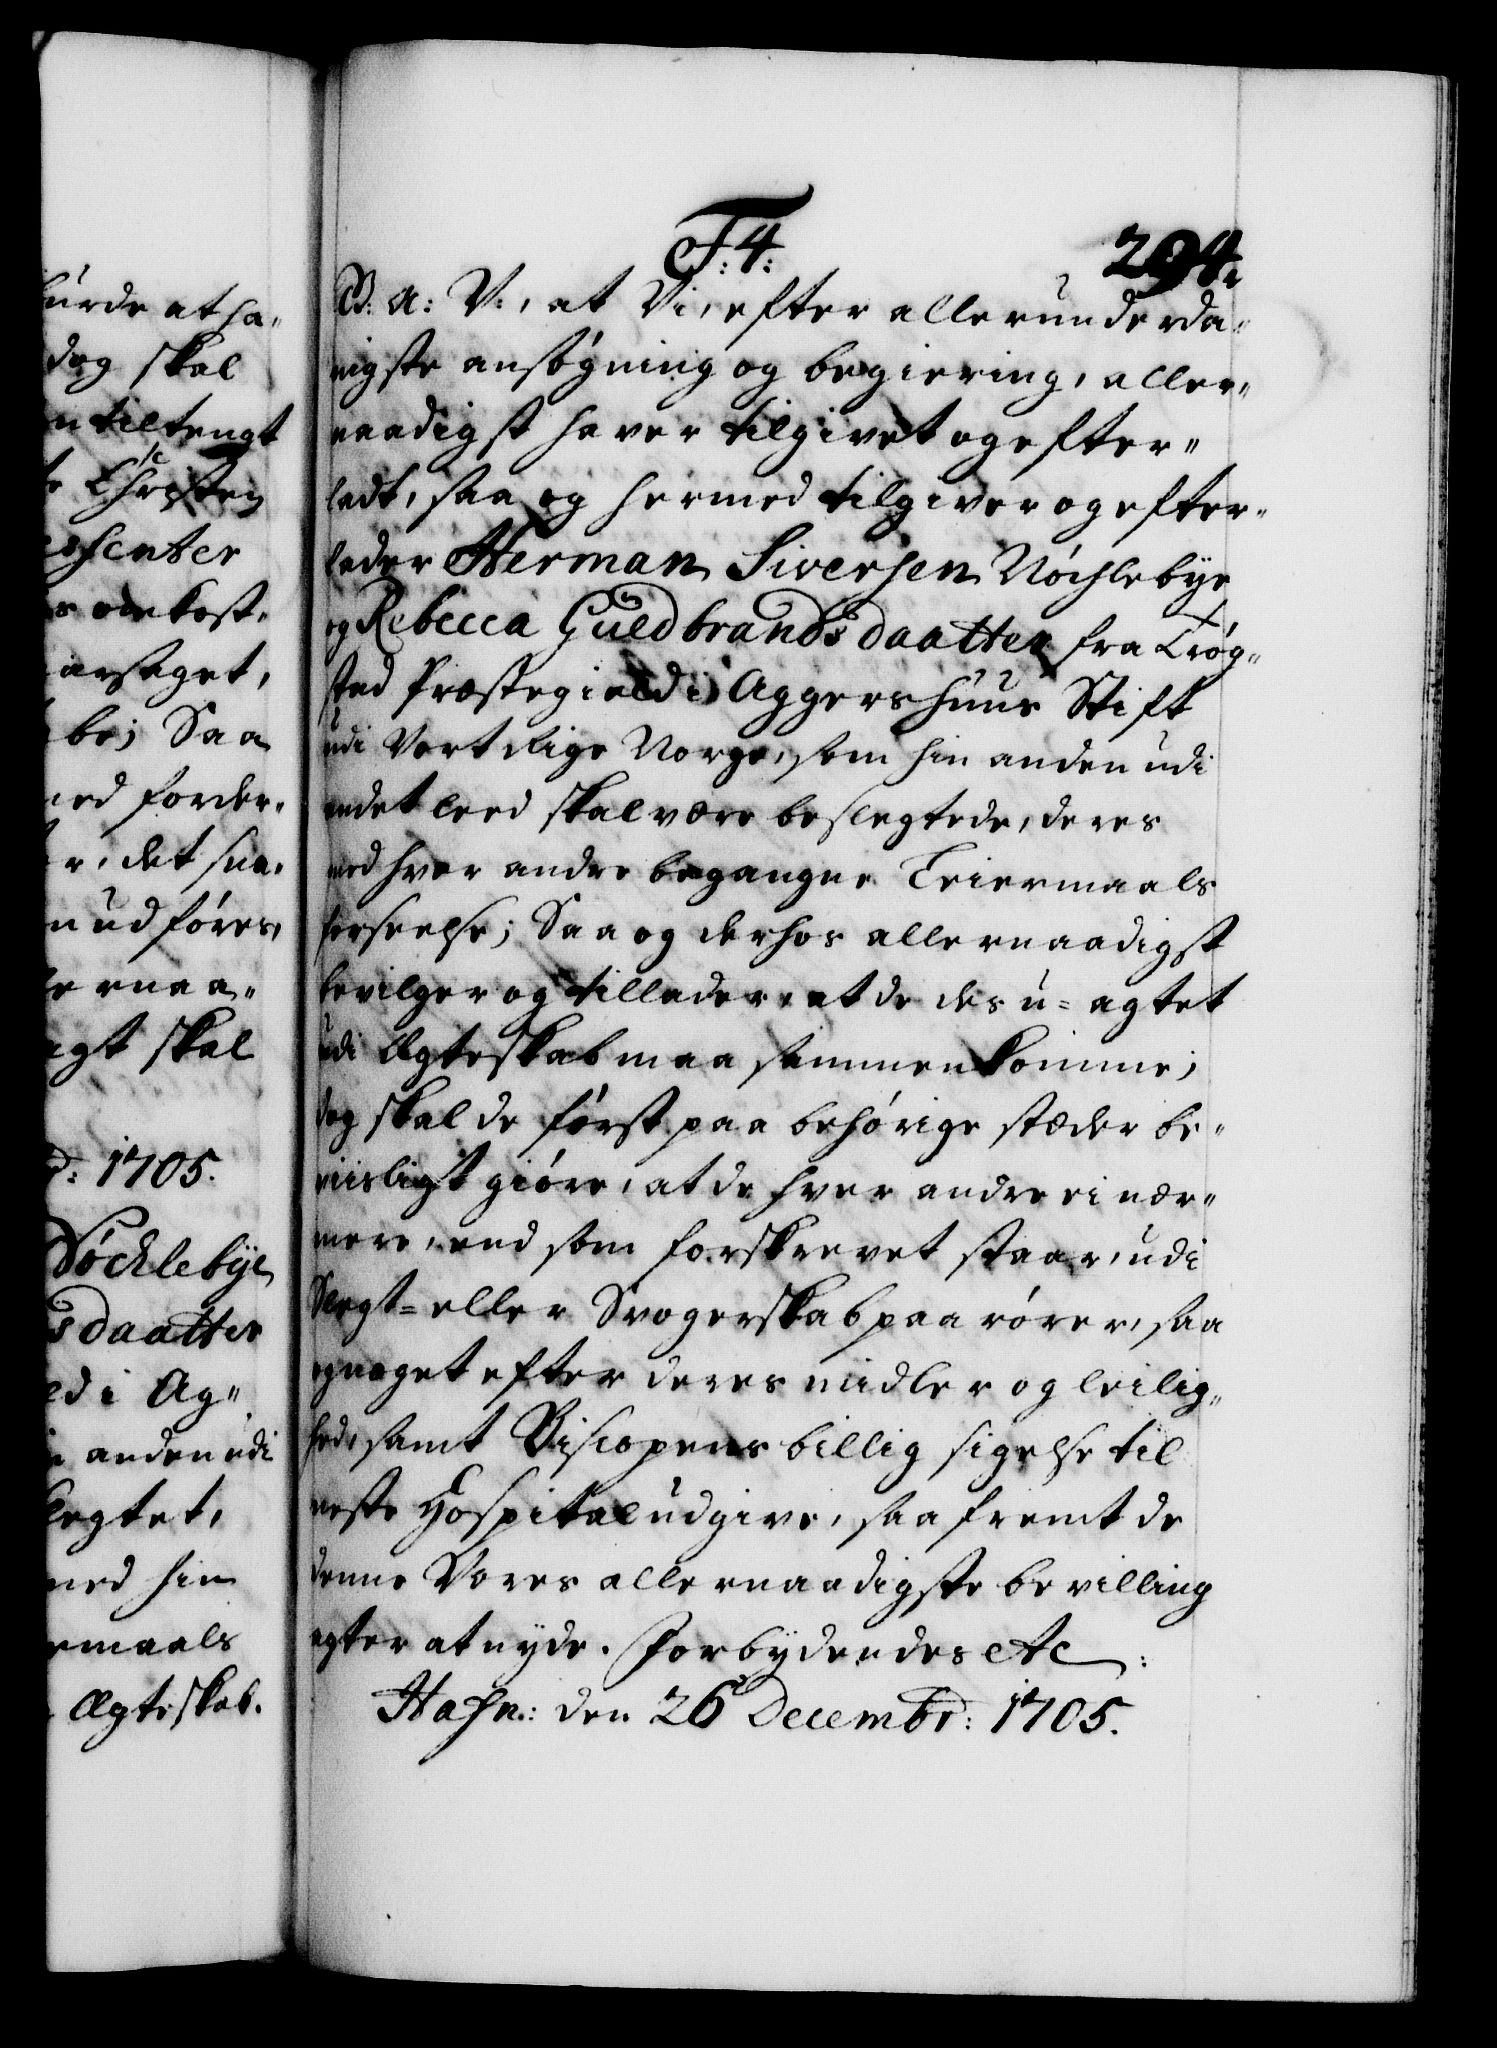 ürde at ha-
dog skal
n tiltengt
e Christen
shenter
s omkost-
arsaget,
be; Saa
ned forder-
r, det saa-
n udføres,
ernaa-
agt skal
d: 1705.
Nöchlebÿe
sdaatter
ed i Ag-
n anden udi
legtet,
med hin
rmaals
Ægteskab.
F: 4: 294.
W: A: V:, at Vi, efter allerunderda-
nigste ansøgning og begiering, aller-
naadigst haver tilgivet og efter-
ladt, saa og hermed tilgiver og efter-
lader Herman Siversen Nöchlebÿe
og Rebecca Guldbrandsdaatter fra Trøg-
stad Præstegield i Aggershuus Stift
udi Vort Rige Norge, som hin anden udi
andet leed skal være beslegtede, deres
med hver andre begangne Leiermaals
forseelse; Saa og derhos allernaadigst
bevilger og tillader, at de des u-agtet
udi Ægteskab maa sammenkomme;
dog skal de først paa behørige stæder be-
viisligt giøre, at de hver andre ei nær-
mere, end som forskrevet staar, udi
Slegt- eller Svogerskab paarører, saa
og noget efter deres midler og leilig-
hed, samt Biscopens billig sigelse til
neste Hospital udgive, saafremt de
denne Vores allernaadigste bevilling
agter at nyde. Forbydendes etc:
Hafn: den 26 Decembr: 1705.